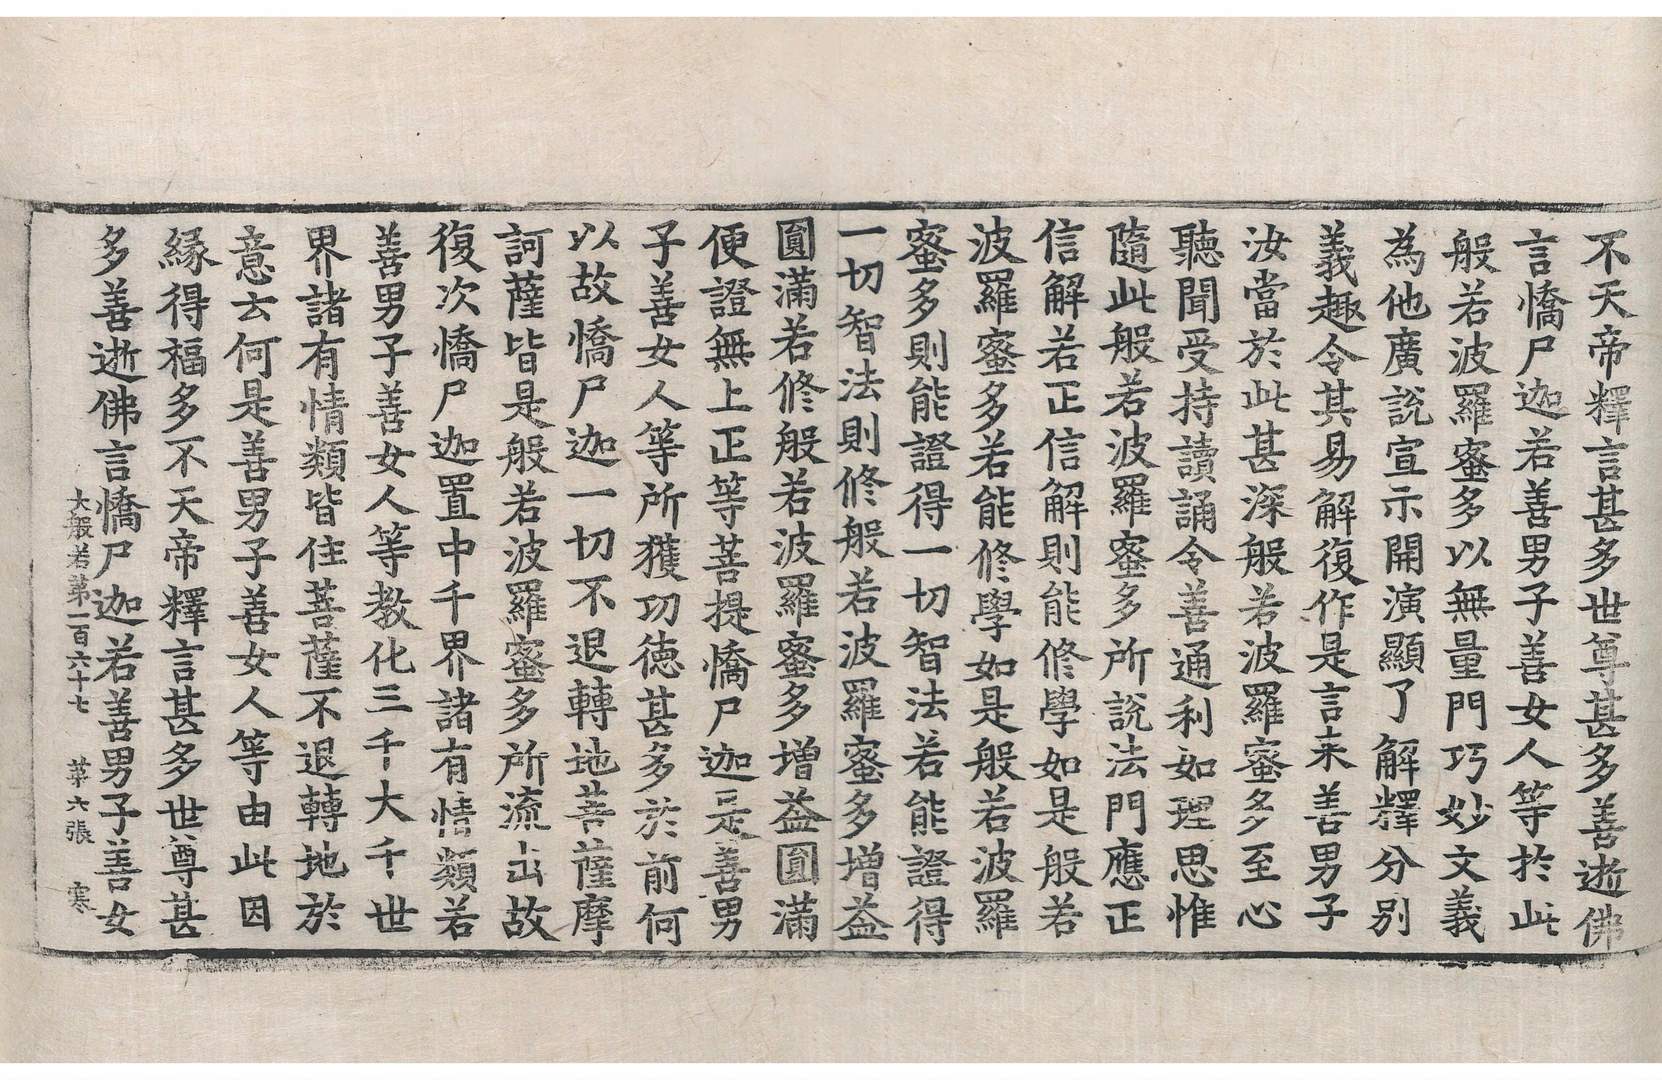 不天帝釋言甚多世尊甚多善逝佛
言憍尸迦若善男子善女人等於此
般若波羅蜜多以無量門巧妙文義
為他廣說宣示開演顯了解釋分別
義趣令其易解復作是言来善男子
汝當於此甚深般若波羅蜜多至心
聽聞受持讀誦令善通利如理思惟
隨此般若波羅蜜多所說法門應正
信解若正信解則能修學如是般若
波羅蜜多若能修學如是般若波羅
蜜多則能證得一切智法若能證得
一切智法則修般若波羅蜜多增益
圓滿若修般若波羅蜜多增益圓滿
便證無上正等菩提憍尸迦是善男
子善女人等所獲功德甚多於前何
以故憍尸迦一切不退轉地菩薩摩
訶薩皆是般若波羅蜜多所流出故
復次憍尸迦置中千界諸有情類若
善男子善女人等教化三千大千世
界諸有情類皆住菩薩不退轉地於
意云何是善男子善女人等由此因
緣得福多不天帝釋言甚多世尊甚
多善逝佛言憍尸迦若善男子善女
大般若第一百六十七 第六張 寒